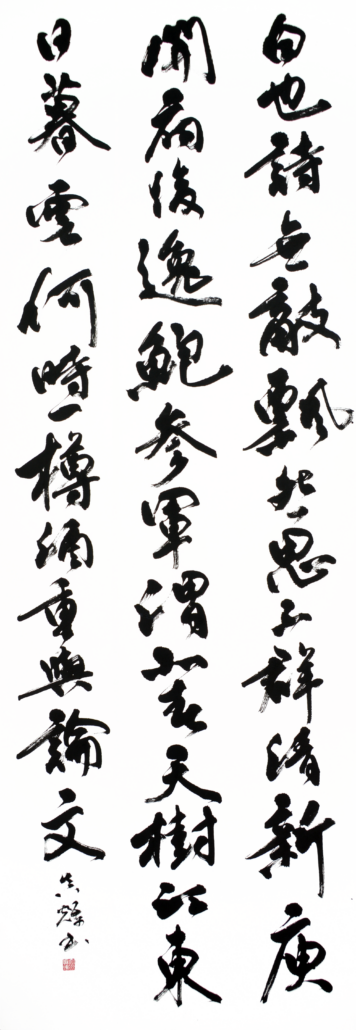 白也詩無敵飄然思不群清新庾
開府俊逸鮑參軍渭北春天樹江東
日暮雲何時一樽酒重與論文